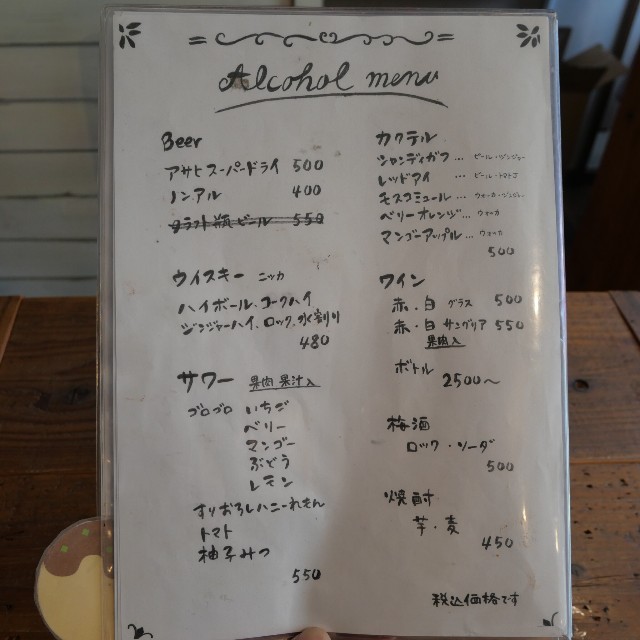 Alcohol menu
Beer
アサヒスーパードライ 500
ノンアル 400
クラフト瓶ビール 550
ウイスキー ニッカ
ハイボール.コークハイ
ジンジャーハイ.ロック.水割り
480
サワー 果肉果汁入
ゴロゴロ いちご
ベリー
マンゴー
ぶどう
レモン
すりおろしハニーれもん
トマト
柚子みつ
550
カクテル
シャンディガフ … ビール・ジンジャー
レッドアイ … ビール・トマト
モスコミュール … ウォッカ・ジンジャー
ベリーオレンジ … ウォッカ
マンゴーアップル … ウォッカ
500
ワイン
赤.白 グラス 500
赤.白 サングリア 550
果肉入
ボトル
2500〜
梅酒
ロック・ソーダ
500
焼酎
芋・麦
450
税込価格です